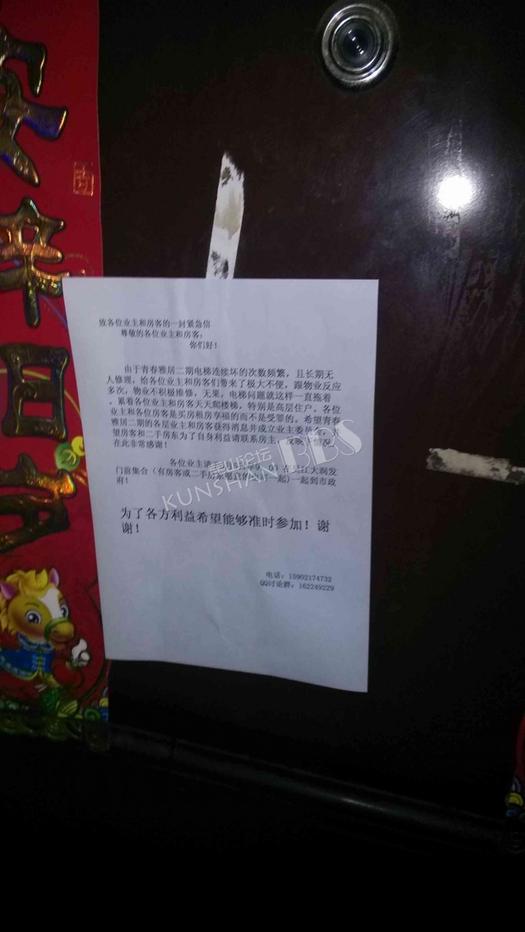 致各位业主和房客的一封紧急信
尊敬的各位业主和房客:
你们好!
由于青春雅居二期电梯连续坏的次数频繁,且长期无
人修理,给各位业主和房客们带来了极大不便,跟物业反应
多次,物业不积极维修,无果,电梯问题就这样一直拖着
,累着各位业主和房客天天爬楼梯,特别是高层住户。各位
业主和各位房客是买房租房享福的而不是受罪的。希望青春
雅居二期的各层业主和房客获得消息并成立业主委员会,希
望房客和二手房东为了自身利益请联系房主,反映下情况,
在此非常感谢!
各位业主请
大润发
门前集合(有房客或二手房东愿意的
一起)一起到市政
府!
为了各方利益希望能够准时参加!谢
谢!
电话:15902174732
QQ讨论群:162249229
昆山论坛
KUNSHAN BBS